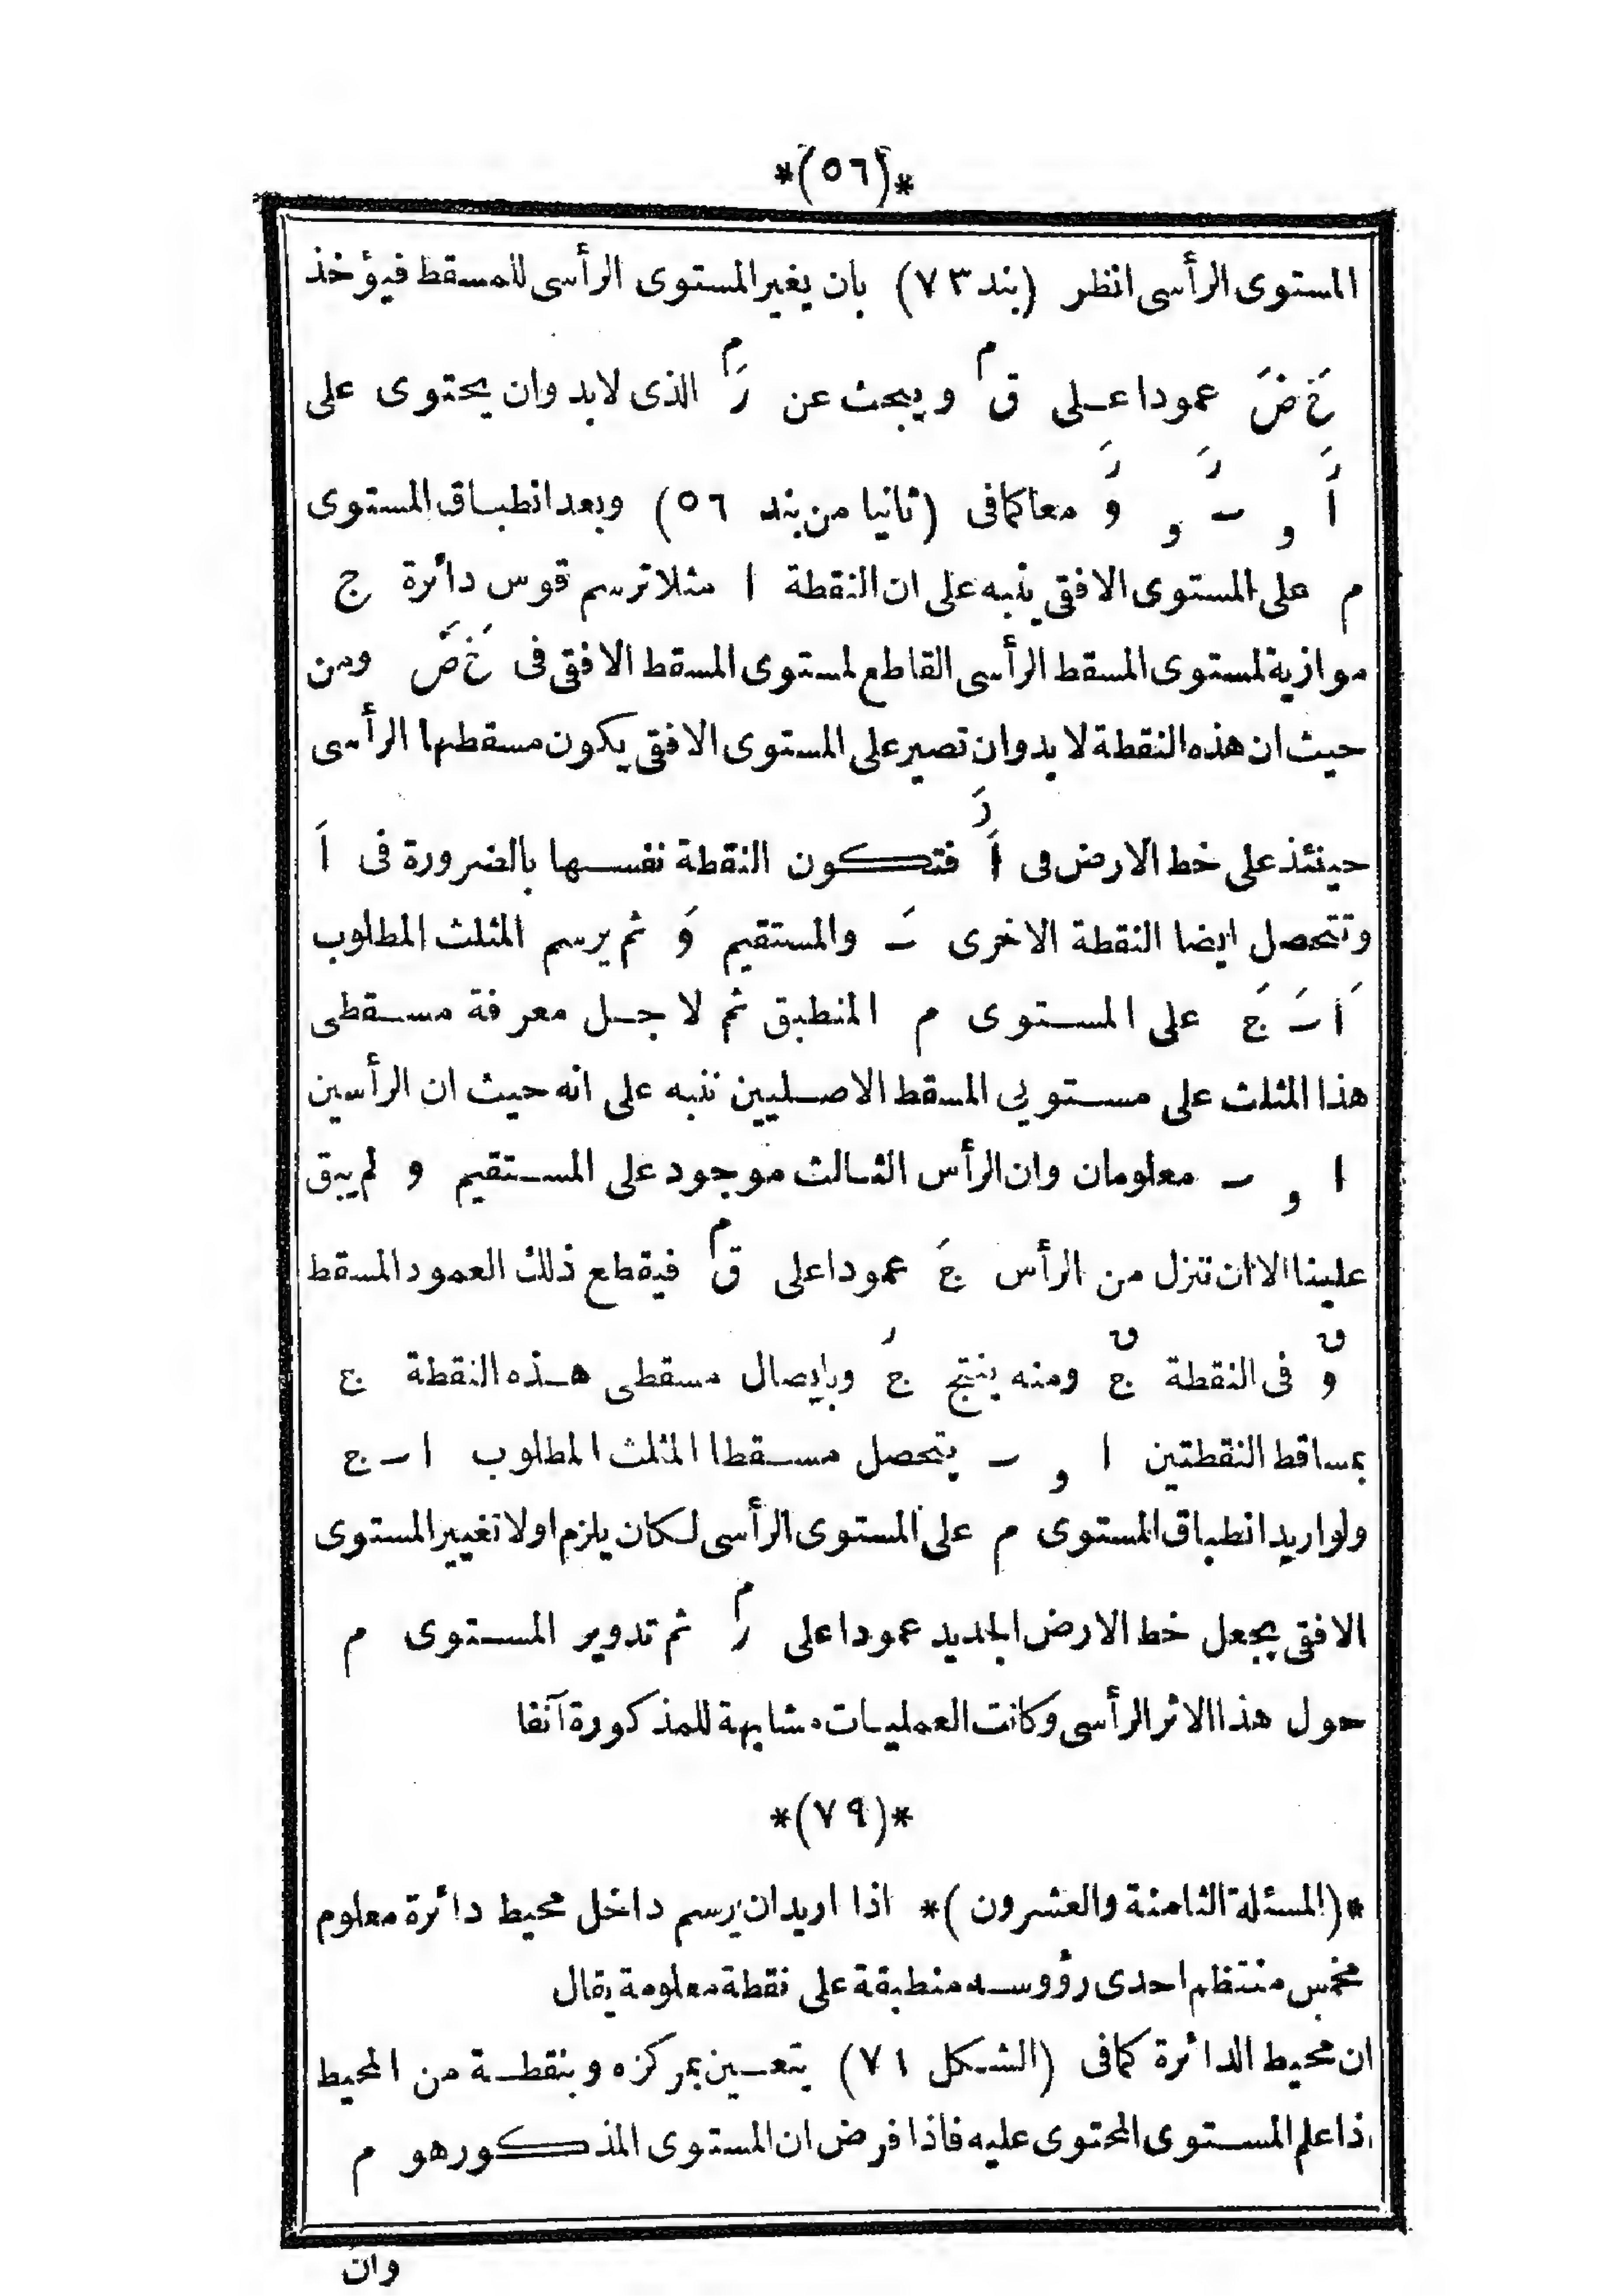 *(٥٦)*
المستوى الرأسى انظر (بند ٧٣) بان يغير المستوى الرأسى للمسقط فيؤخذ
خَ ضَ عمودا على قم ويبحث عن رَم الذى لابد وان يحتوى على
اَر و ـَر و وَر معا كما فى (ثانيا من بند ٥٦) وبعد انطباق المستوى
م على المستوى الافقى ينبه على ان النقطة ا مثلا ترسم قوس دائرة ج
موازية لمستوى المسقط الرأسى القاطع لمستوى المسقط الافقى فى خَ ضَ ومن
حيث ان هذه النقطة لا بد وان تصير على المستوى الافقى يكون مسقطها الرأسى
حينئذ على خط الارض فى اَرَ فتكون النقطة نفسها بالضرورة فى اَ
وتتحصل ايضا النقطة الاخرى ــَ والمستقيم وَ ثم يرسم المثلث المطلوب
اَ ــَ جَ على المستوى م المنطبق ثم لا جل معرفة مسقطى
هذا المثلث على مستويى المسقط الاصليين ننبه على انه حيث ان الرأسين
ا و ــ معلومان وان الرأس الثالث موجود على المستقيم و لم يبق
علينا الا ان تنزل من الرأس جَ عمودا على قم فيقطع ذلك العمود المسقط
وق فى النقطة جق ومنه ينتج جر وبايصال مسقطى هذه النقطة ج
بمساقط النقطتين ا و ــ يتحصل مسقطا المثلث المطلوب ا ــ ج
ولو اريد انطباق المستوى م على المستوى الرأسى لكان يلزم اولا تغيير المستوى
الافقى بجعل خط الارض الجديد عمودا على رم ثم تدوير المستوى م
حول هذا الاثر الرأسى وكانت العمليات مشابهة للمذكورة آنفا
*(٧٩)*
*(المسئلة الثامنة والعشرون)* اذا اريد ان يرسم داخل محيط دائرة معلوم
مخمس منتظم احدى رؤوسه منطبقة على نقطة معلومة يقال
ان محيط الدائرة كما فى (الشكل ٧١) يتعين بمركزه وبنقطة من المحيط
اذا علم المستوى المحتوى عليه فاذا فرض ان المستوى المذكور هو م
وان